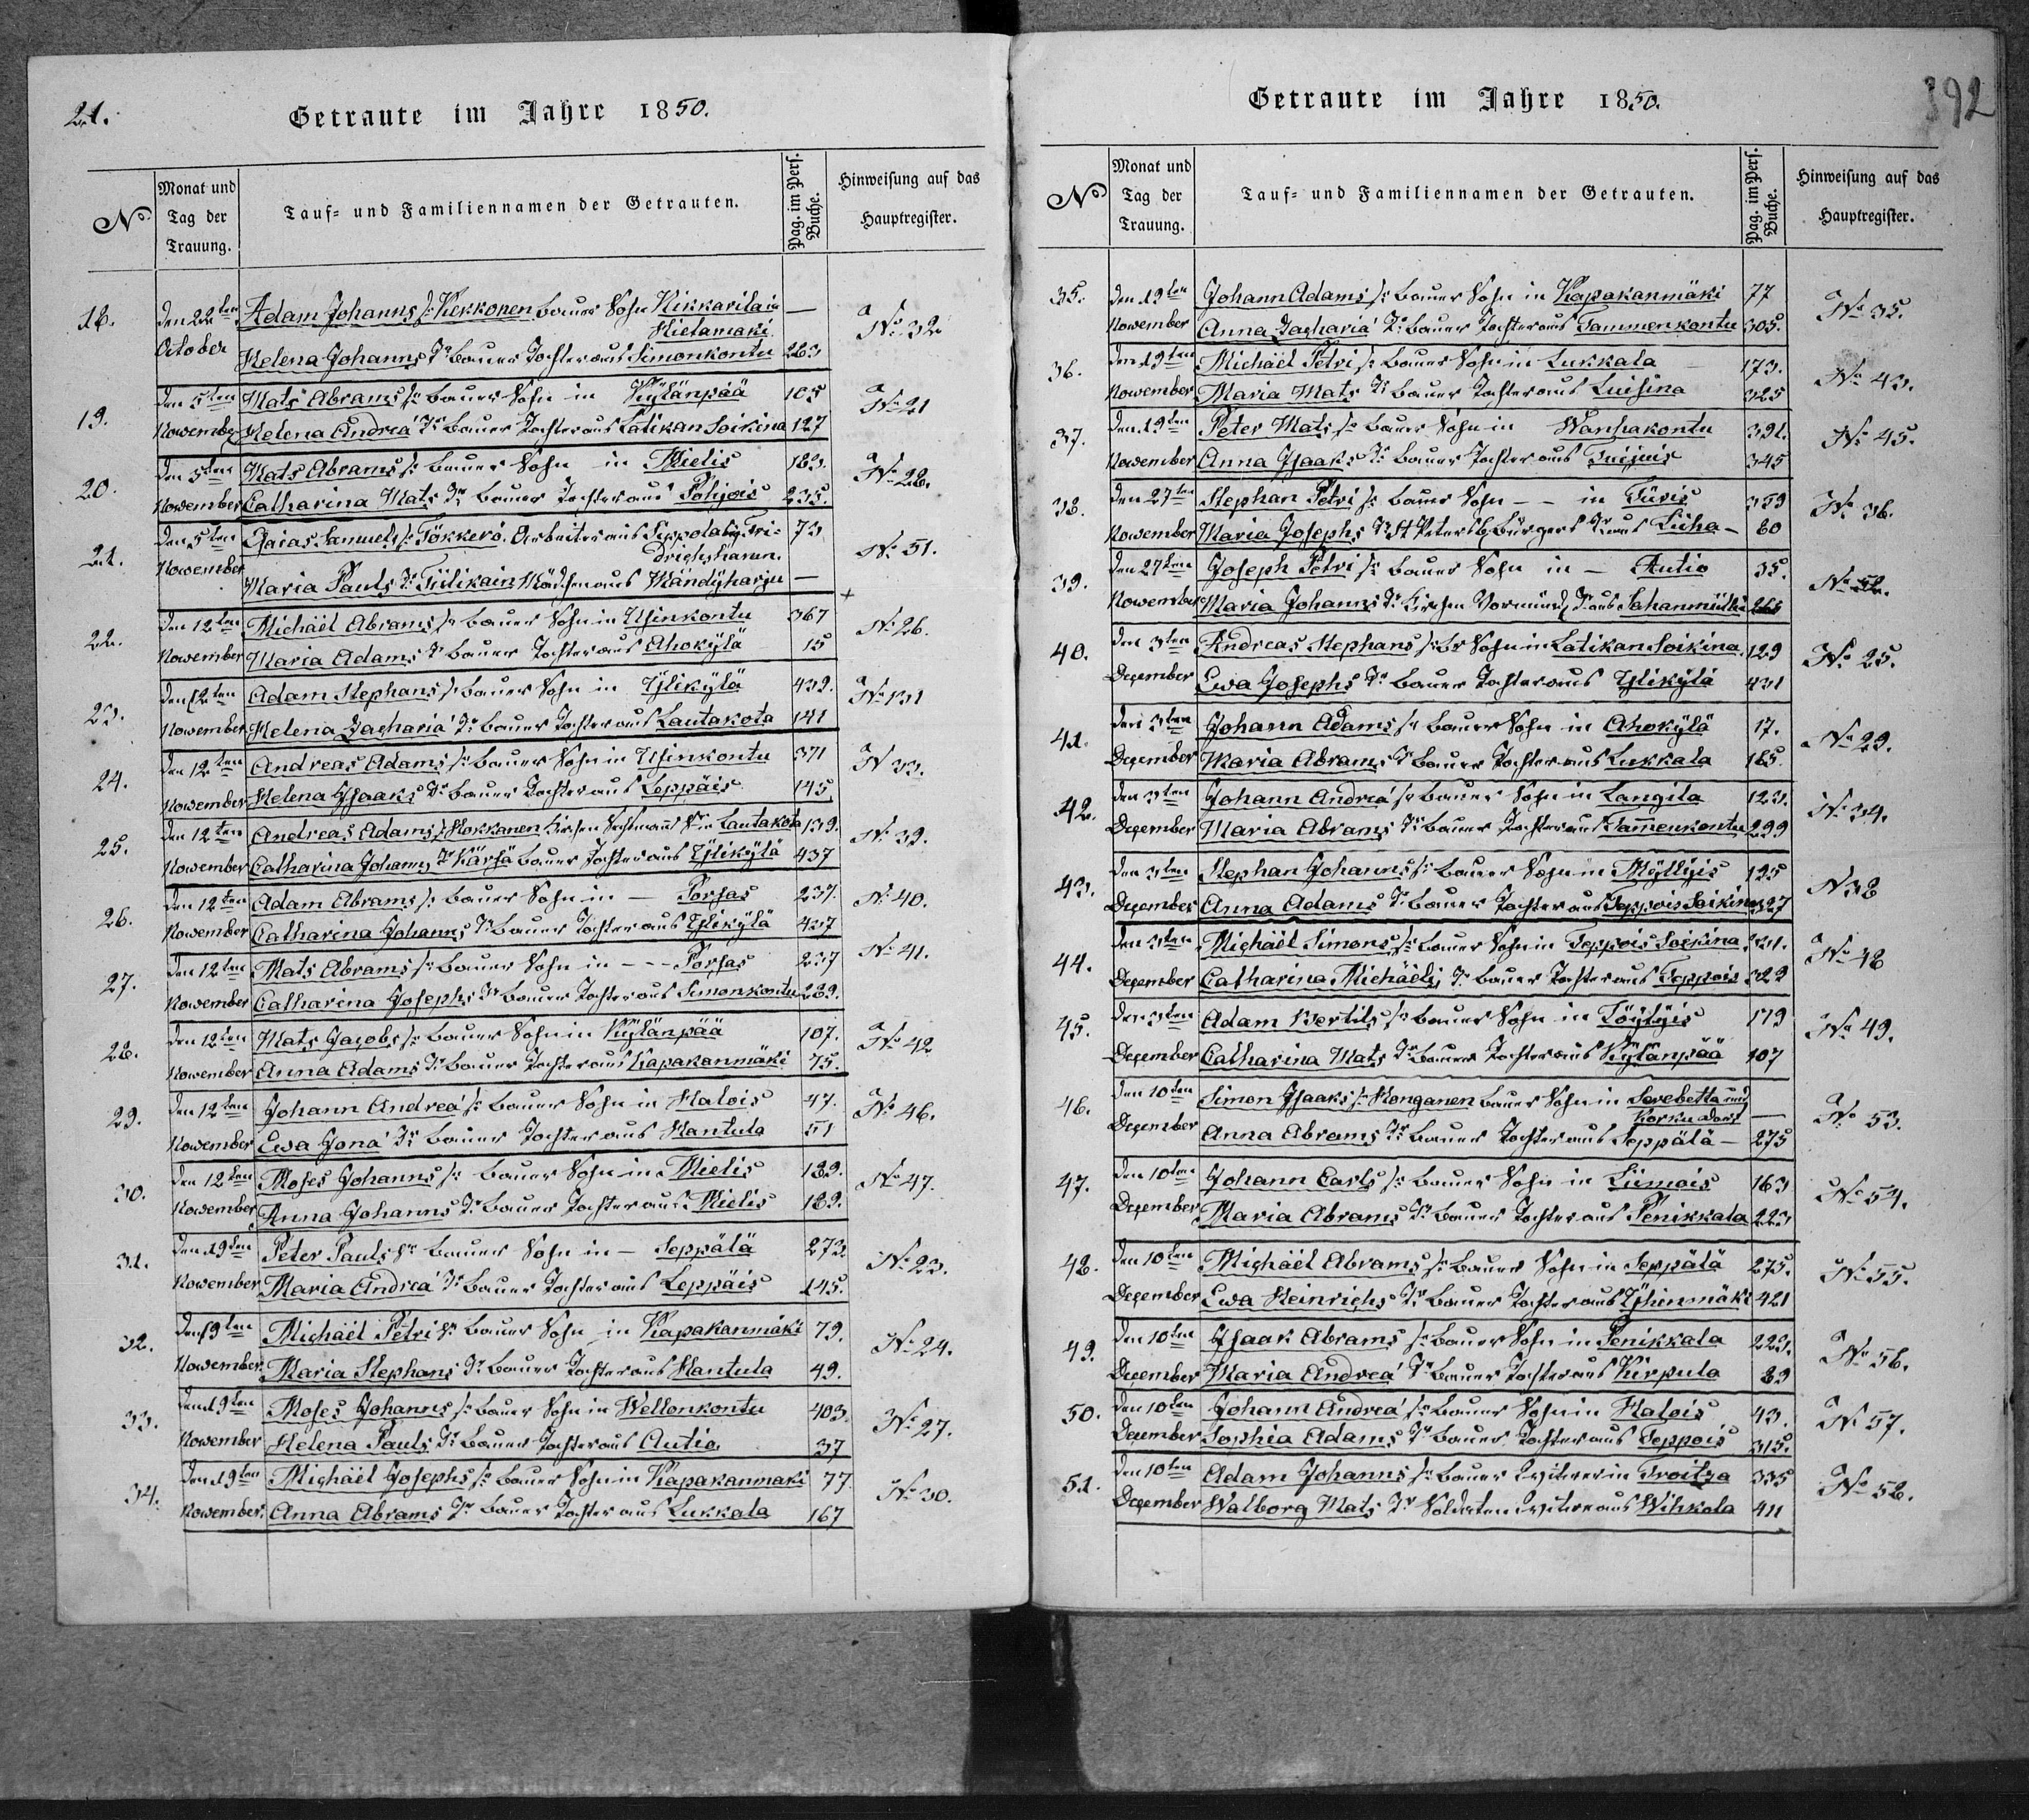 21.
Getraute im Jahre 1850.
No.
Monat und Tag der Trauung.
Tauf- und Familiennamen der Getrauten.
Pag. im Pers. Buche.
Hinweisung auf das Hauptregister.
18. den 22ten Adam Johanns S. Kekkonen bauer Sohn Kikkarila in — No 32
Hietamaki
October Helena Johanns Tr bauer Tochter aus Simonkontu 283
19. den 5ten Mats Abrams Sr bauer Sohn in Kylänpää 105 No 21
November Helena Andreä Tr bauer Tochter aus Latikan Soikina 127
20. den 5ten Mats Abrams Sr bauer Sohn in Mielis 183. No 28.
November Catharina Mats Tr bauer Tochter aus Pohjois 235.
21. den 5ten Esaias Samuels Sr Tökkerö. Arbeiter aus Sippola bey Fri- 73 No 51.
November drichshamn.
Maria Pauls Tr Tiilikain Mädchen aus Mändyharju —
22. den 12ten Michäel Abrams Sr bauer Sohn in Usinkontu 367 No 26.
November Maria Adams Tr bauer Tochter aus Ahokylä 15
23. den 12ten Adam Stephans Sr bauer Sohn in Ylikylä 439. No 131
November Helena Zachariä Tr bauer Tochter aus Lautakota 141
24. den 12ten Andreas Adams Sr bauer Sohn in Usinkontu 371 N 33.
November Helena Isaaks Tr bauer Tochter aus Leppäis 145.
25. den 12ten Andreas Adams S. Hokkanen Kirchen Sr in Lautakota 139. No 39.
November Catharina Johanns Tr Kärsä bauer Tochter aus Ylikylä 437
26. den 12ten Adam Abrams Sr bauer Sohn in — Porsas 237. No 40.
November Catharina Johanns Tr bauer Tochter aus Ylikylä 437
27. den 12ten Mats Abrams Sr bauer Sohn in - - - Porsas 237 No 41.
November Catharina Josephs Tr bauer Tochter aus Simonkontu 289.
28. den 12ten Mats Jacobs Sr bauer Sohn in Kylänpää 107. No 42
November Anna Adams Tr bauer Tochter aus Kapakanmäki 75.
29. den 12ten Johann Andreä Sr bauer Sohn in Halois 47. No 46.
November Ewa Jonä Tr bauer Tochter aus Hantula 51
30. den 12ten Moses Johanns Sr bauer Sohn in Mielis 189. No 47.
November Anna Johanns Tr bauer Tochter aus Mielis 189.
31. den 19ten Peter Pauls Sr bauer Sohn in — Seppälä 273. No 23.
November Maria Andreä Tr bauer Tochter aus Leppäis 145.
32. den 19ten Michäel Petri Sr bauer Sohn in Kapakanmäki 79. No 24.
November Maria Stephans Tr bauer Tochter aus Hantula 49.
33. den 19ten Moses Johanns Sr bauer Sohn in Wellonkontu 403. No 27.
November Helena Pauls Tr bauer Tochter aus Autio 37
34. den 19ten Michäel Josephs Sr bauer Sohn in Kapakanmaki 77. No 30.
November. Anna Abrams Tr bauer Tochter aus Lukkala 167
392
Getraute im Jahre 1850.
No
Monat und Tag der Trauung.
Tauf- und Familiennamen der Getrauten.
Pag. im Pers. Buche.
Hinweisung auf das Hauptregister.
35. den 19ten Johann Adams Sr bauer Sohn in Kapakanmäki 77 No 35.
November Anna Zachariä Tr bauer Tochter aus Tammenkontu 305.
36. den 19ten Michäel Petri Sr bauer Sohn in Lukkala 173. No 43.
November Maria Mats Tr bauer Tochter aus Luisina 325
37. den 19ten Peter Mats Sr bauer Sohn in Wanhakontu 391. No 45.
November Anna Isaaks Tr bauer Tochter aus 345
38. den 27ten Stephan Petri Sr bauer Sohn - - in Türis 359 No 36.
November Maria Josephs Tr St Petersb. Bürgers Tr aus Liiha - 60
39. den 27ten Joseph Petri Sr bauer Sohn in — Autio 35. No 52.
November Maria Johanns Tr Kirchen Vormünd. Tr aus
40. den 3ten Andreas Stephans Sr br Sohn in Latikan Soikina. 129 No 25.
December Ewa Josephs Tr bauer Tochter aus Ylikylä 431
41. den 3ten Johann Adams Sr bauer Sohn in Ahokylä 17. No 29.
December Maria Abrams Tr bauer Tochter aus Lukkala 165.
42. den 3ten Johann Andreä Sr bauer Sohn in Langila 123. No 34.
December Maria Abrams Tr bauer Tochter aus Tammenkontu 299
43. den 3ten Stephan Johanns Sr bauer Sohn in Myllyis 125 N 38
December Anna Adams Tr bauer Tochter aus Teppois Soikina 327
44. den 3ten Michäel Simons Sr bauer Sohn in Teppois Soikina. 321. No 48
December Catharina Michäels Tr bauer Tochter aus Teppois 322
45. den 3ten Adam Bertils Sr bauer Sohn in Löylyis 179 No 49.
December Catharina Mats Tr bauer Tochter aus Kylänpää 107
46. den 10ten Simon Isaaks Sr Honganen bauer Sohn in Serebetta und — No 53.
Korkudorf
December Anna Abrams Tr bauer Tochter aus Seppälä — 275
47. den 10ten Johann Carls Sr bauer Sohn in Liimois 163 No 54.
December Maria Abrams Tr bauer Tochter aus Penikkala 223
48. den 10ten Michäel Abrams Sr bauer Sohn in Seppälä 275. No 55.
December Ewa Heinrichs Tr bauer Tochter aus Yhinmäki 421
49. den 10ten Isaak Abrams Sr bauer Sohn in Penikkala 223. No 56.
December Maria Andreä Tr bauer Tochter aus Kirpula 89
50. den 10ten Johann Andreä Sr bauer Sohn in Halois 43. No 57.
December Sophia Adams Tr bauer Tochter aus Teppois 315.
51. den 10ten Adam Johanns Sr bauer Witwer in Troitza 335 No 58.
December Walborg Mats Tr Soldaten Witwe aus Wihkala 411